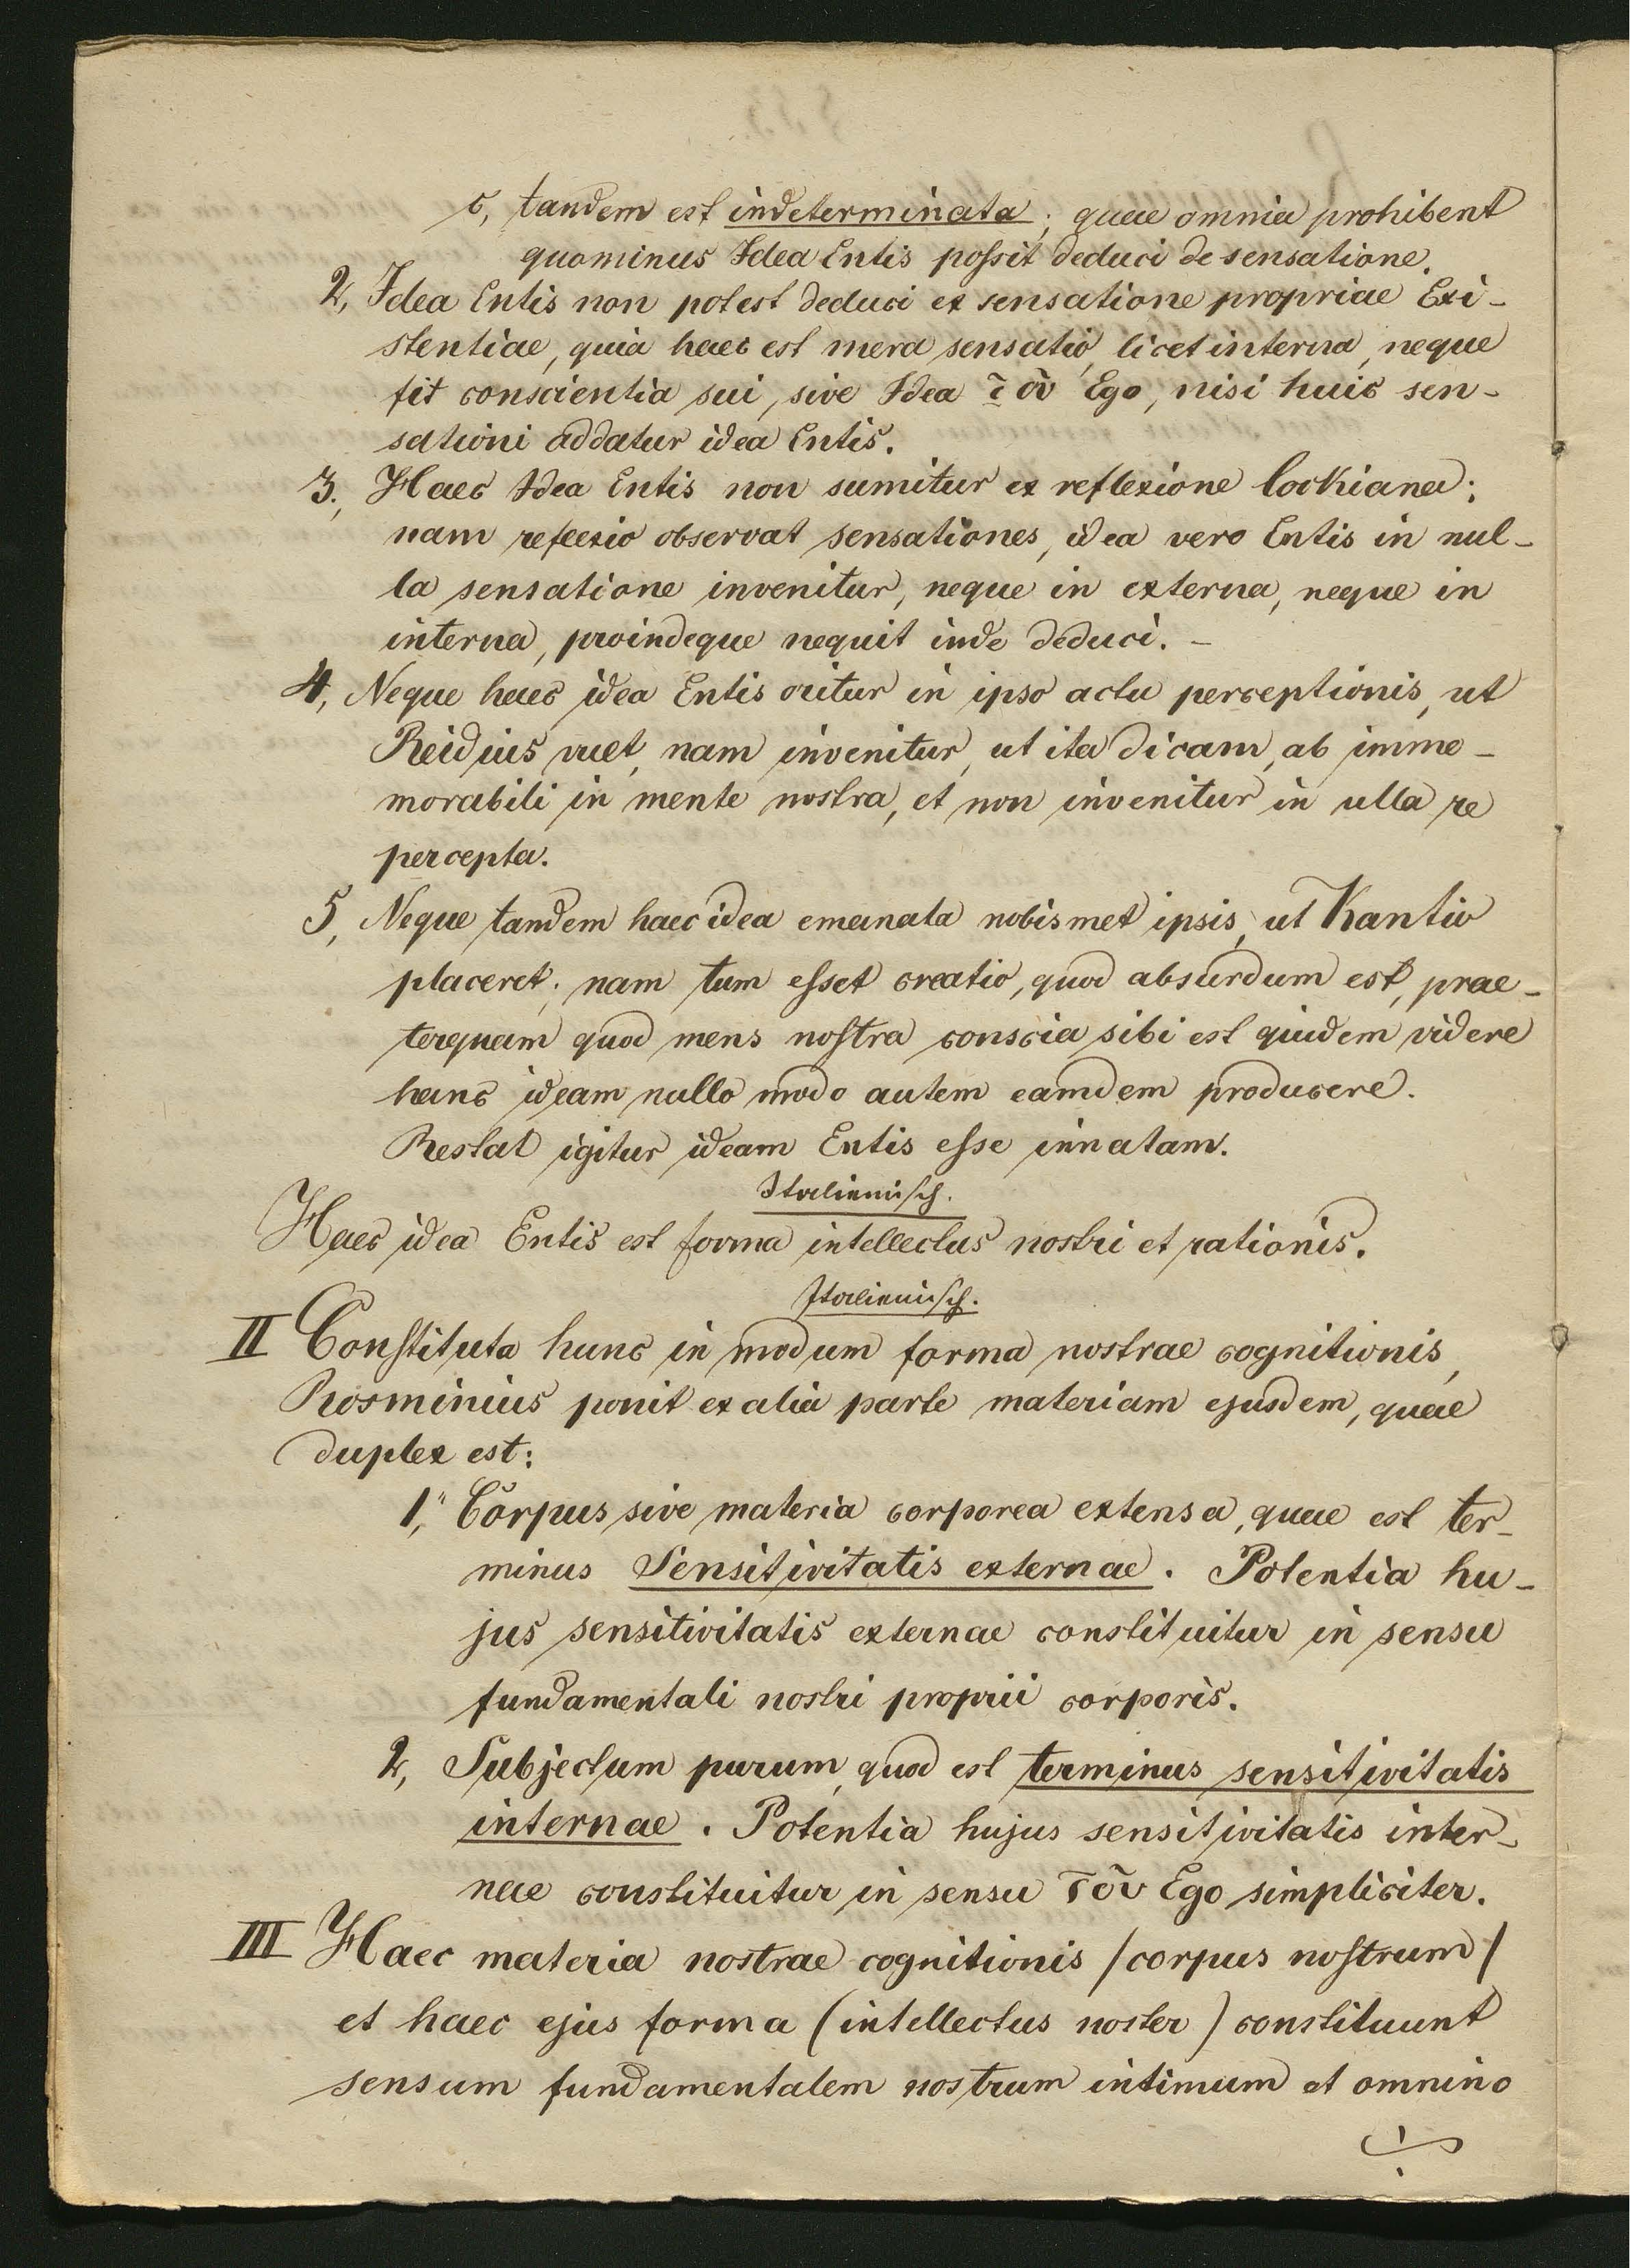 c, tandem est indeterminata; quae omnia prohibent
quominus Idea Entis poſsit deduci de sensatione.
2, Idea Entis non potest deduci ex sensatione propriae Exi-
stentiae, quia haec est mera sensatio, licet interna, neque
fit conscientia sui, sive Idea τοῦ Ego, nisi huic sen-
sationi addatur idea Entis.
3., Haec Idea Entis non sumitur ex reflexione Lockiana;
nam reflexio observat sensationes, idea vero Entis in nul-
la sensatione invenitur, neque in externa, neque in
interna, proindeque nequit inde deduci. –
4, Neque haec idea Entis oritur in ipso actu perceptionis, ut
Reidius vult, nam invenitur, ut ita dicam, ab imme-
morabili in mente nostra, et non invenitur in ulla re
percepta.
5, Neque tandem haec idea emanata nobismet ipsis, ut Kantio
placeret; nam tum eſset creatio, quod absurdum est, prae-
terquam quod mens noſtra conscia sibi est quidem videre
hanc ideam nullo modo autem eamdem producere.
Restat igitur ideam Entis eſse innatam.
Italieniſch.
Haec idea Entis est forma intellectus nostri et rationis.
Italieniſch.
II Conſtituta hunc in modum forma nostrae cognitionis,
Rosminius ponit ex alia parte materiam ejusdem, quae
duplex est:
1, Corpus sive materia corporea extensa, quae est ter-
minus Sensitivitatis externae. Potentia hu-
jus sensitivitatis externae constituitur in sensu
fundamentali nostri proprii corporis.
2, Subjectum purum, quod est terminus sensitivitatis
internae. Potentia hujus sensitivitatis inter-
nae constituitur in sensu τοῦ Ego simpliciter.
III Haec materia nostrae cognitionis /corpus noſtrum/
et haec ejus forma (intellectus noster) constituunt
sensum fundamentalem nostrum intimum et omnino